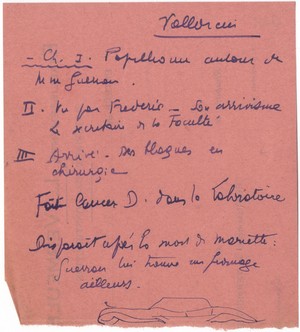 Vallorcin
- Ch. I. Papillonne autour de
Mme Guerran.
II. Vu par Frédéric - Son arrivisme
Le secrétaire de la Faculté
III Arrivé. Ses blagues en
chirurgie
Fait Cancer D. dans le laboratoire
Disparaît après la mort de Mariette:
Guerran lui trouve un fromage
ailleurs.